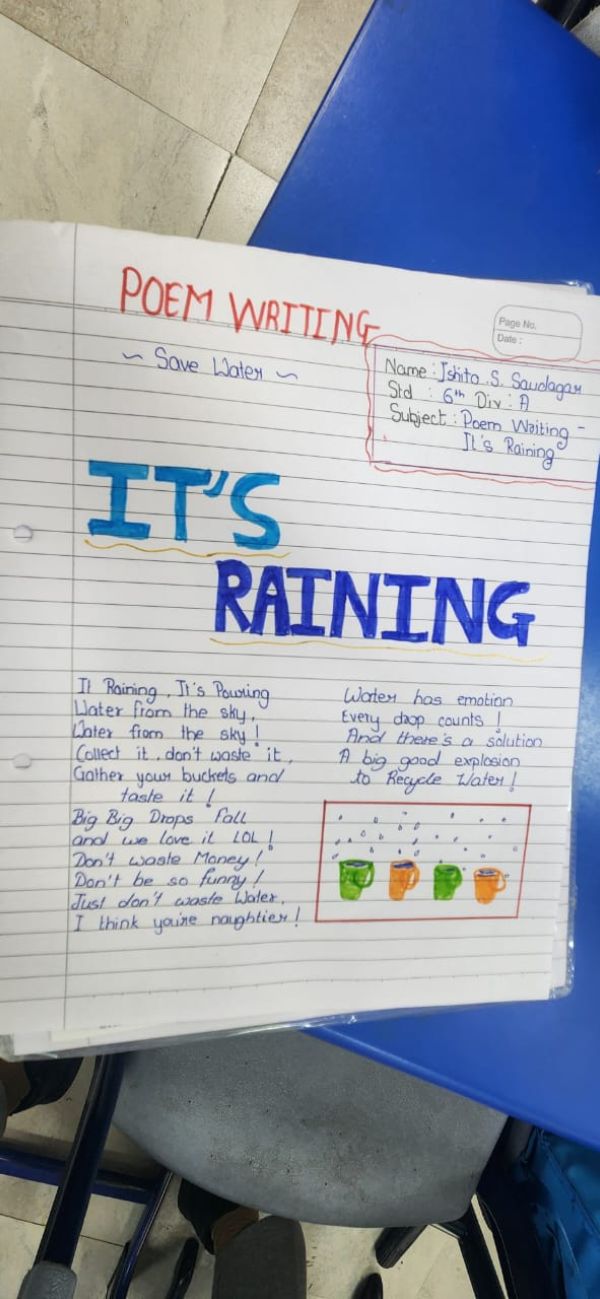 POEM WRITING
Page No.
Date :
~ Save Water ~
Name : Ishita S. Saudagar
Std : 6th Div : A
Subject : Poem Writing -
It's Raining
IT'S
RAINING
It Raining, It's Pouring
Water from the sky,
Water from the sky!
Collect it, don't waste it,
Gather your buckets and
taste it!
Big Big Drops Fall
and we love it LOL!
Don't waste Money!
Don't be so funny!
Just don't waste Water,
I think you're naughtier!
Water has emotion
Every drop counts!
And there's a solution
A big good explosion
to Recycle Water!